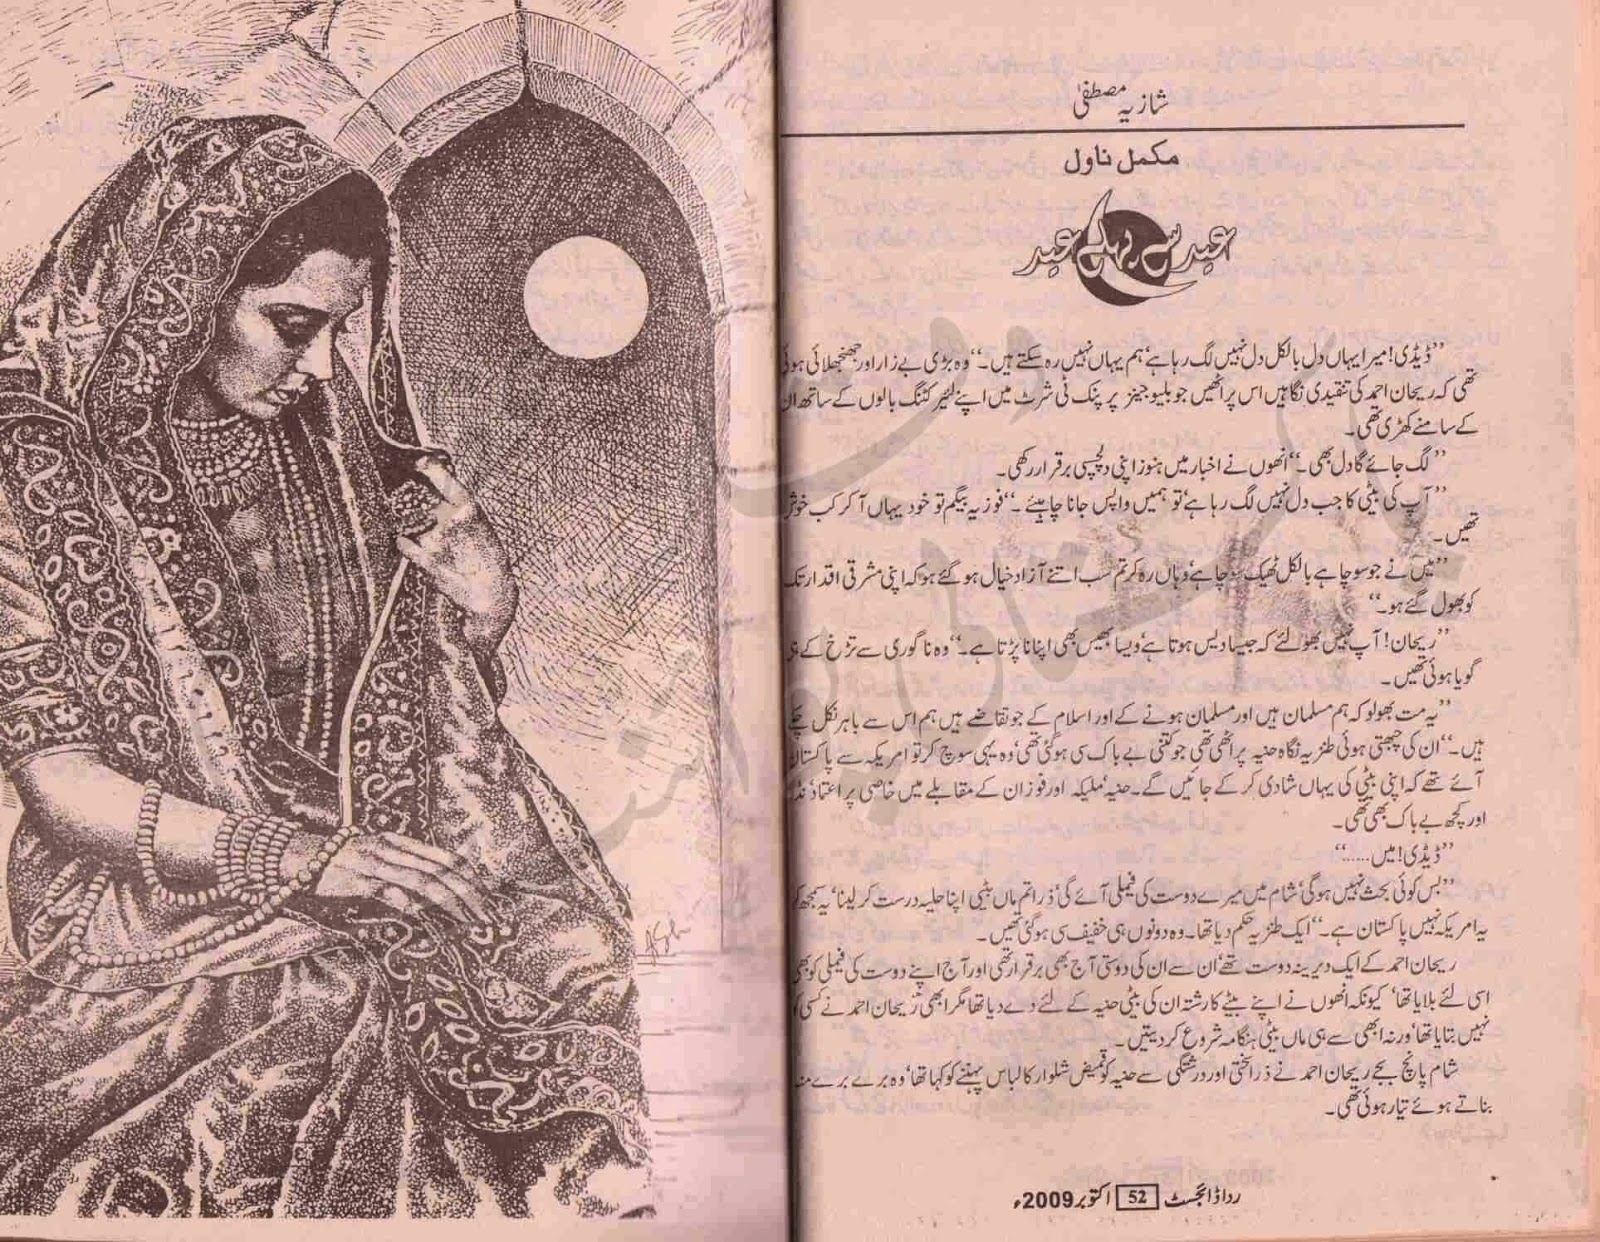 شازیہ مصطفیٰ
مکمل ناول
عید سے پہلے عید
’’ڈیڈی! میرا یہاں دل بالکل دل نہیں لگ رہا ہے‘ ہم یہاں نہیں رہ سکتے ہیں۔‘‘ وہ بڑی بے زار اور جھنجھلائی ہوئی
تھی کہ ریحان احمد کی تنقیدی نگاہیں اس پر اٹھیں جو بلیو جینز پر پنک ٹی شرٹ میں اپنے لئیر کٹنگ بالوں کے ساتھ ان
کے سامنے کھڑی تھی۔
’’لگ جائے گا دل بھی۔‘‘ انھوں نے اخبار میں ہنوز اپنی دلچسپی برقرار رکھی۔
’’آپ کی بیٹی کا جب دل نہیں لگ رہا ہے‘ تو ہمیں واپس جانا چاہیئے۔‘‘ فوزیہ بیگم تو خود یہاں آ کر کب خوش
تھیں۔
’’میں نے جو سوچا ہے بالکل ٹھیک سوچا ہے‘ وہاں رہ کر تم سب اتنے آزاد خیال ہو گئے ہو کہ اپنی مشرقی اقدار تک
کو بھول گئے ہو۔‘‘
’’ریحان! آپ نہیں بھولئے کہ جیسا دیس ہوتا ہے‘ ویسا بھیس بھی اپنانا پڑتا ہے۔‘‘ وہ ناگوری سے تڑخ کے
گویا ہوئی تھیں۔
’’یہ مت بھولو کہ ہم مسلمان ہیں اور مسلمان ہونے کے اور اسلام کے جو تقاضے ہیں ہم اس سے باہر نکل چکے
ہیں۔‘‘ ان کی چبھتی ہوئی طنزیہ نگاہ حنیہ پر اٹھی تھی جو کتنی بے باک سی ہو گئی تھی‘ وہ یہی سوچ کر تو امریکہ سے پاکستان
آئے تھے کہ اپنی بیٹی کی یہاں شادی کر کے جائیں گے۔ حنیہ‘ ملیکہ اور فوزان کے مقابلے میں خاصی پر اعتماد‘
اور کچھ بے باک بھی تھی۔
’’ڈیڈی! میں......‘‘
’’بس کوئی بحث نہیں ہوگی‘ شام میں میرے دوست کی فیملی آئے گی‘ ذرا تم ماں بیٹی اپنا حلیہ درست کر لینا‘ یہ سمجھ کو
یہ امریکہ نہیں پاکستان ہے۔‘‘ ایک طنزیہ حکم دیا تھا۔ وہ دونوں ہی خفیف سی ہو گئی تھیں۔
ریحان احمد کے ایک دیرینہ دوست تھے‘ ان سے ان کی دوستی آج بھی برقرار تھی اور آج اپنے دوست کی فیملی کو بھی
اسی لئے بلایا تھا‘ کیونکہ انھوں نے اپنے بیٹے کا رشتہ ان کی بیٹی حنیہ کے لئے دے دیا تھا مگر ابھی ریحان احمد نے کسی کو
نہیں بتایا تھا‘ ورنہ ابھی سے ہی ماں بیٹی ہنگامہ شروع کر دیتیں۔
شام پانچ بجے ریحان احمد نے ذرا سختی اور درشتگی سے حنیہ کو قمیض شلوار کا لباس پہننے کو کہا تھا‘ وہ برے برے منہ
بناتے ہوئے تیار ہوئی تھی۔
ردا ڈائجسٹ 52 اکتوبر 2009ء